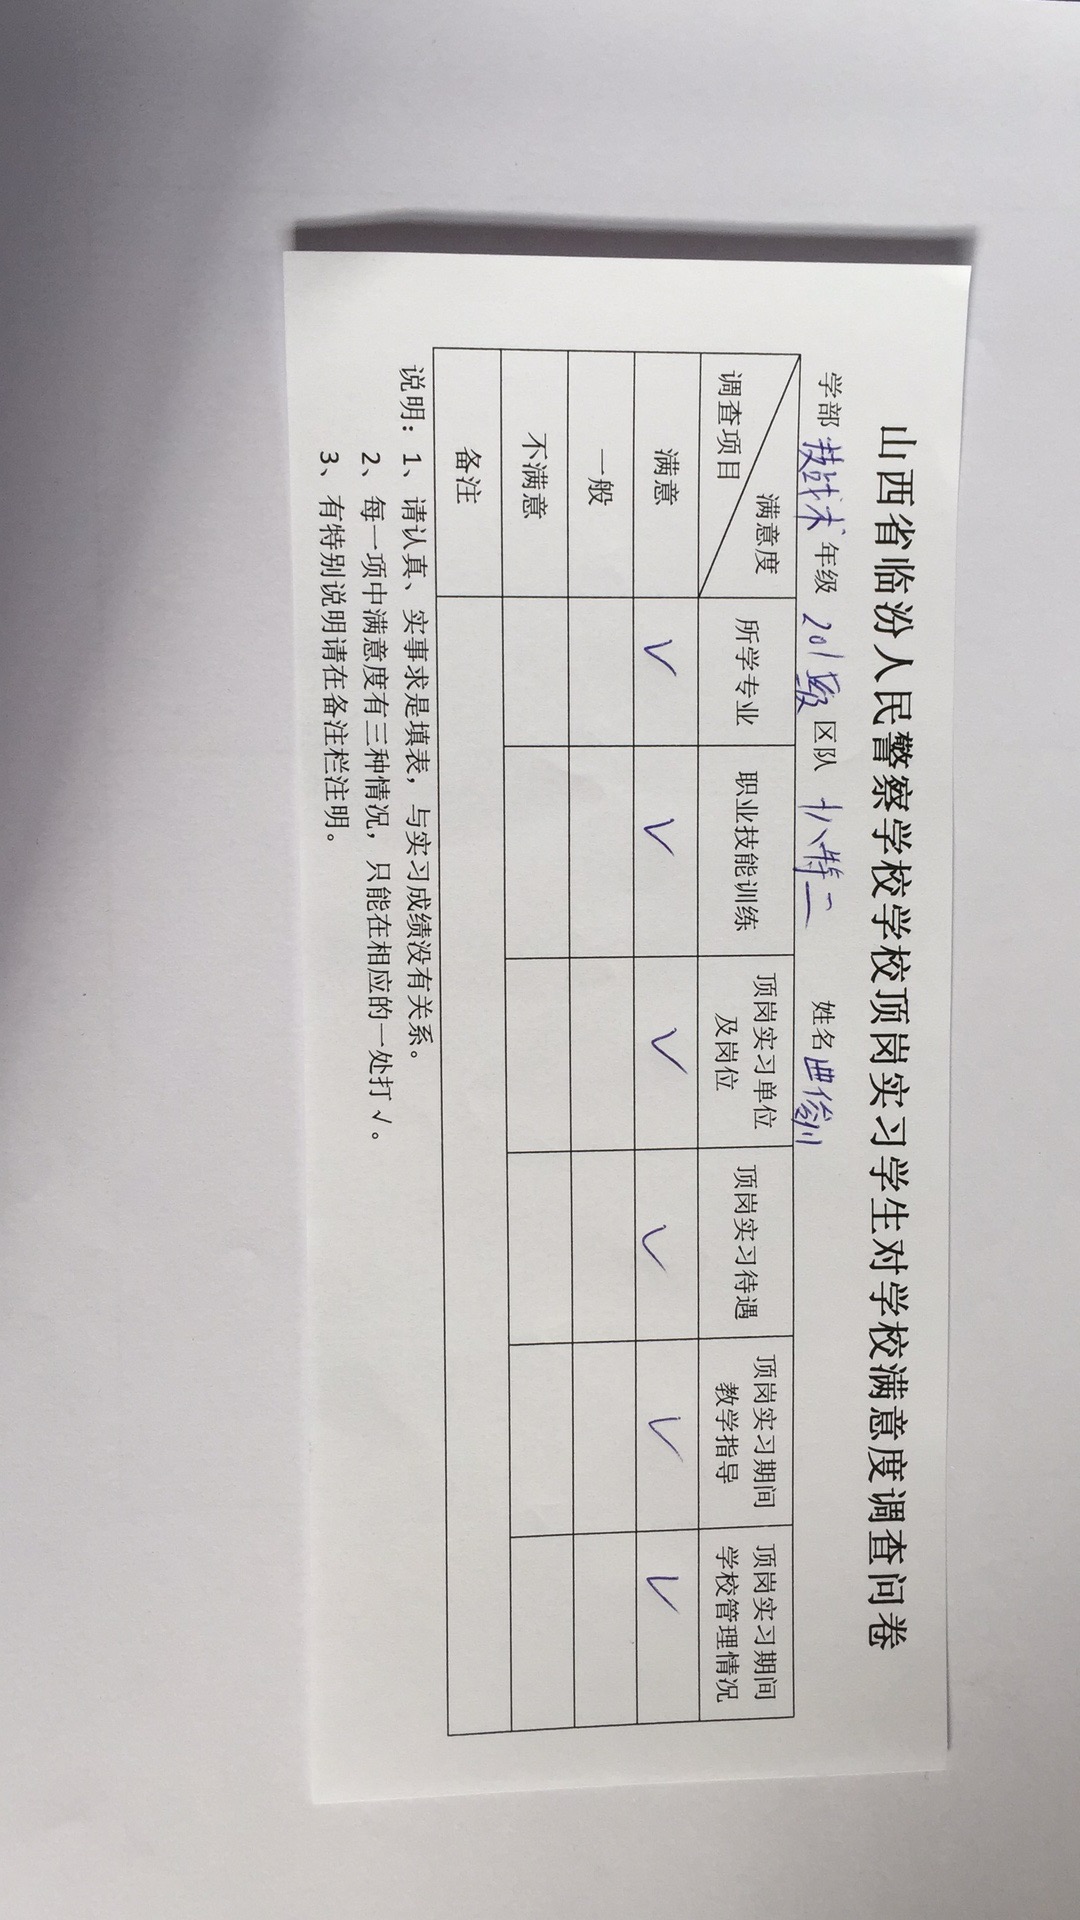 山西省临汾人民警察学校学校顶岗实习学生对学校满意度调查问卷
学部 技战术 年级 201级 区队 十八特二 姓名 曲俊圳
满意度 调查项目 所学专业 职业技能训练 顶岗实习单位及岗位 顶岗实习待遇 顶岗实习期间教学指导 顶岗实习期间学校管理情况
满意 √ √ √ √ √ √
一般
不满意
备注
说明：1、请认真、实事求是填表，与实习成绩没有关系。
2、每一项中满意度有三种情况，只能在相应的一处打 √ 。
3、有特别说明请在备注栏注明。